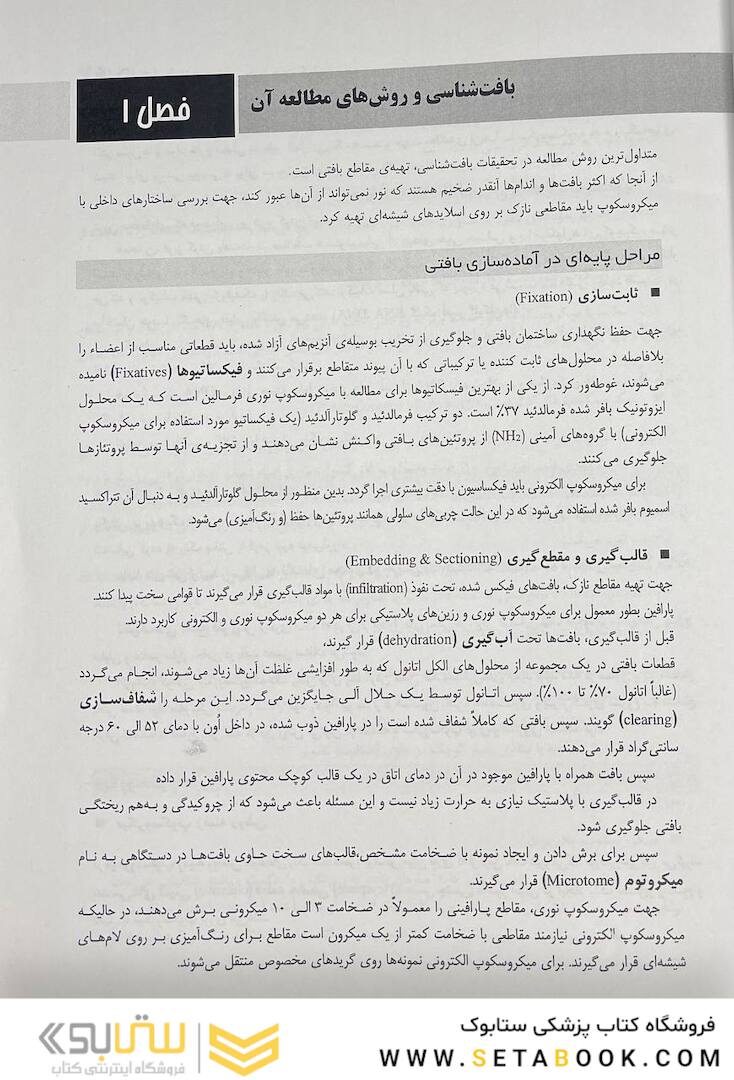 بافت‌شناسی و روش‌های مطالعه آن
فصل ۱
متداول‌ترین روش مطالعه در تحقیقات بافت‌شناسی، تهیه‌ی مقاطع بافتی است.
از آنجا که اکثر بافت‌ها و اندام‌ها آنقدر ضخیم هستند که نور نمی‌تواند از آن‌ها عبور کند، جهت بررسی ساختارهای داخلی با
میکروسکوپ باید مقاطعی نازک بر روی اسلایدهای شیشه‌ای تهیه کرد.
مراحل پایه‌ای در آماده‌سازی بافتی
■ ثابت‌سازی (Fixation)
جهت حفظ نگهداری ساختمان بافتی و جلوگیری از تخریب بوسیله‌ی آنزیم‌های آزاد شده، باید قطعاتی مناسب از اعضاء را
بلافاصله در محلول‌های ثابت کننده یا ترکیباتی که با آن پیوند متقاطع برقرار می‌کنند و فیکساتیوها (Fixatives) نامیده
می‌شوند، غوطه‌ور کرد. از یکی از بهترین فیسکاتیوها برای مطالعه با میکروسکوپ نوری فرمالین است که یک محلول
ایزوتونیک بافر شده فرمالدئید ۳۷٪ است. دو ترکیب فرمالدئید و گلوتارآلدئید (یک فیکساتیو مورد استفاده برای میکروسکوپ
الکترونی) با گروه‌های آمینی (NH2) از پروتئین‌های بافتی واکنش نشان می‌دهند و از تجزیه‌ی آنها توسط پروتئازها
جلوگیری می‌کنند.
برای میکروسکوپ الکترونی باید فیکساسیون با دقت بیشتری اجرا گردد. بدین منظور از محلول گلوتارآلدئید و به دنبال آن تتراکسید
اسمیوم بافر شده استفاده می‌شود که در این حالت چربی‌های سلولی همانند پروتئین‌ها حفظ (و رنگ‌آمیزی) می‌شود.
■ قالب‌گیری و مقطع‌گیری (Embedding & Sectioning)
جهت تهیه مقاطع نازک، بافت‌های فیکس شده، تحت نفوذ (infiltration) با مواد قالب‌گیری قرار می‌گیرند تا قوامی سخت پیدا کنند.
پارافین بطور معمول برای میکروسکوپ نوری و رزین‌های پلاستیکی برای هر دو میکروسکوپ نوری و الکترونی کاربرد دارند.
قبل از قالب‌گیری، بافت‌ها تحت آب‌گیری (dehydration) قرار گیرند،
قطعات بافتی در یک مجموعه از محلول‌های الکل اتانول که به طور افزایشی غلظت آن‌ها زیاد می‌شوند، انجام می‌گردد
(غالباً اتانول ۷۰٪ تا ۱۰۰٪). سپس اتانول توسط یک حلال آلی جایگزین می‌گردد. این مرحله را شفاف‌سازی
(clearing) گویند. سپس بافتی که کاملاً شفاف شده است را در پارافین ذوب شده، در داخل اُون با دمای ۵۲ الی ۶۰ درجه
سانتی‌گراد قرار می‌دهند.
سپس بافت همراه با پارافین موجود در آن در دمای اتاق در یک قالب کوچک محتوی پارافین قرار داده
در قالب‌گیری با پلاستیک نیازی به حرارت زیاد نیست و این مسئله باعث می‌شود که از چروکیدگی و به‌هم ریختگی
بافتی جلوگیری شود.
سپس برای برش دادن و ایجاد نمونه با ضخامت مشخص،قالب‌های سخت حاوی بافت‌ها در دستگاهی به نام
میکروتوم (Microtome) قرار می‌گیرند.
جهت میکروسکوپ نوری، مقاطع پارافینی را معمولاً در ضخامت ۳ الی ۱۰ میکرونی برش می‌دهند، در حالیکه
میکروسکوپ الکترونی نیازمند مقاطعی با ضخامت کمتر از یک میکرون است مقاطع برای رنگ‌آمیزی بر روی لام‌های
شیشه‌ای قرار می‌گیرند. برای میکروسکوپ الکترونی نمونه‌ها روی گریدهای مخصوص منتقل می‌شوند.
فروشگاه کتاب پزشکی ستابوک
WWW.SETABOOK.COM
ستابوک
فروشگاه اینترنتی کتاب